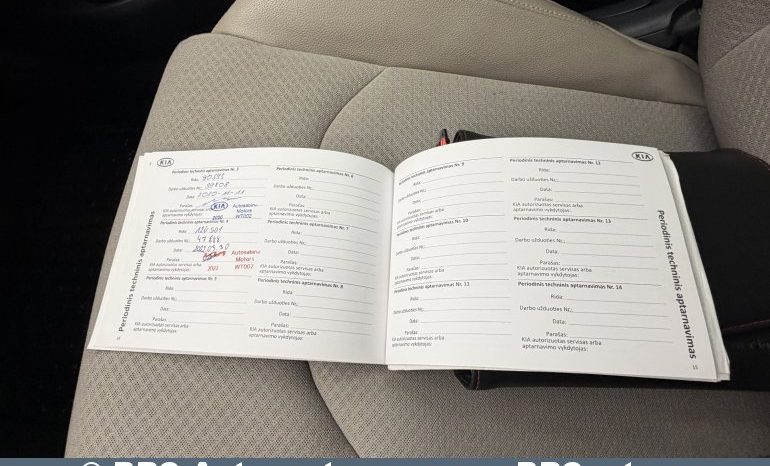 KIA
Periodinis techninis aptarnavimas Nr. 3
Rida: 90595
Darbo užduoties Nr.: 39808
Data: 2020-11-11
Parašas:
KIA autorizuotas servisas arba
aptarnavimo vykdytojas:
KIA
2020
Motors
WT002
Periodinis techninis aptarnavimas Nr. 4
Rida: 120 501
Darbo užduoties Nr.: 47888
Data:
Parašas:
KIA autorizuotas servisas arba
aptarnavimo vykdytojas:
Motors
WT002
Periodinis techninis aptarnavimas Nr. 5
Rida:
Darbo užduoties Nr.:
Data:
Parašas:
KIA autorizuotas servisas arba
aptarnavimo vykdytojas:
Periodinis techninis aptarnavimas Nr. 6
Rida:
Darbo užduoties Nr.:
Data:
Parašas:
KIA autorizuotas servisas arba
aptarnavimo vykdytojas:
Periodinis techninis aptarnavimas Nr. 7
Rida:
Darbo užduoties Nr.:
Data:
Parašas:
KIA autorizuotas servisas arba
aptarnavimo vykdytojas:
Periodinis techninis aptarnavimas Nr. 8
Rida:
Darbo užduoties Nr.:
Data:
Parašas:
KIA autorizuotas servisas arba
aptarnavimo vykdytojas:
Periodinis techninis aptarnavimas
Periodinis techninis aptarnavimas Nr. 9
Rida:
Darbo užduoties Nr.:
Data:
Parašas:
KIA autorizuotas servisas arba
aptarnavimo vykdytojas:
Periodinis techninis aptarnavimas Nr. 10
Rida:
Darbo užduoties Nr.:
Data:
Parašas:
KIA autorizuotas servisas arba
aptarnavimo vykdytojas:
Periodinis techninis aptarnavimas Nr. 11
Rida:
Darbo užduoties Nr.:
Data:
Parašas:
KIA autorizuotas servisas arba
aptarnavimo vykdytojas:
KIA
Periodinis techninis aptarnavimas Nr. 12
Rida:
Darbo užduoties Nr.:
Data:
Parašas:
KIA autorizuotas servisas arba
aptarnavimo vykdytojas:
Periodinis techninis aptarnavimas Nr. 13
Rida:
Darbo užduoties Nr.:
Data:
Parašas:
KIA autorizuotas servisas arba
aptarnavimo vykdytojas:
Periodinis techninis aptarnavimas Nr. 14
Rida:
Darbo užduoties Nr.:
Data:
Parašas:
KIA autorizuotas servisas arba
aptarnavimo vykdytojas:
Periodinis techninis aptarnavimas
15